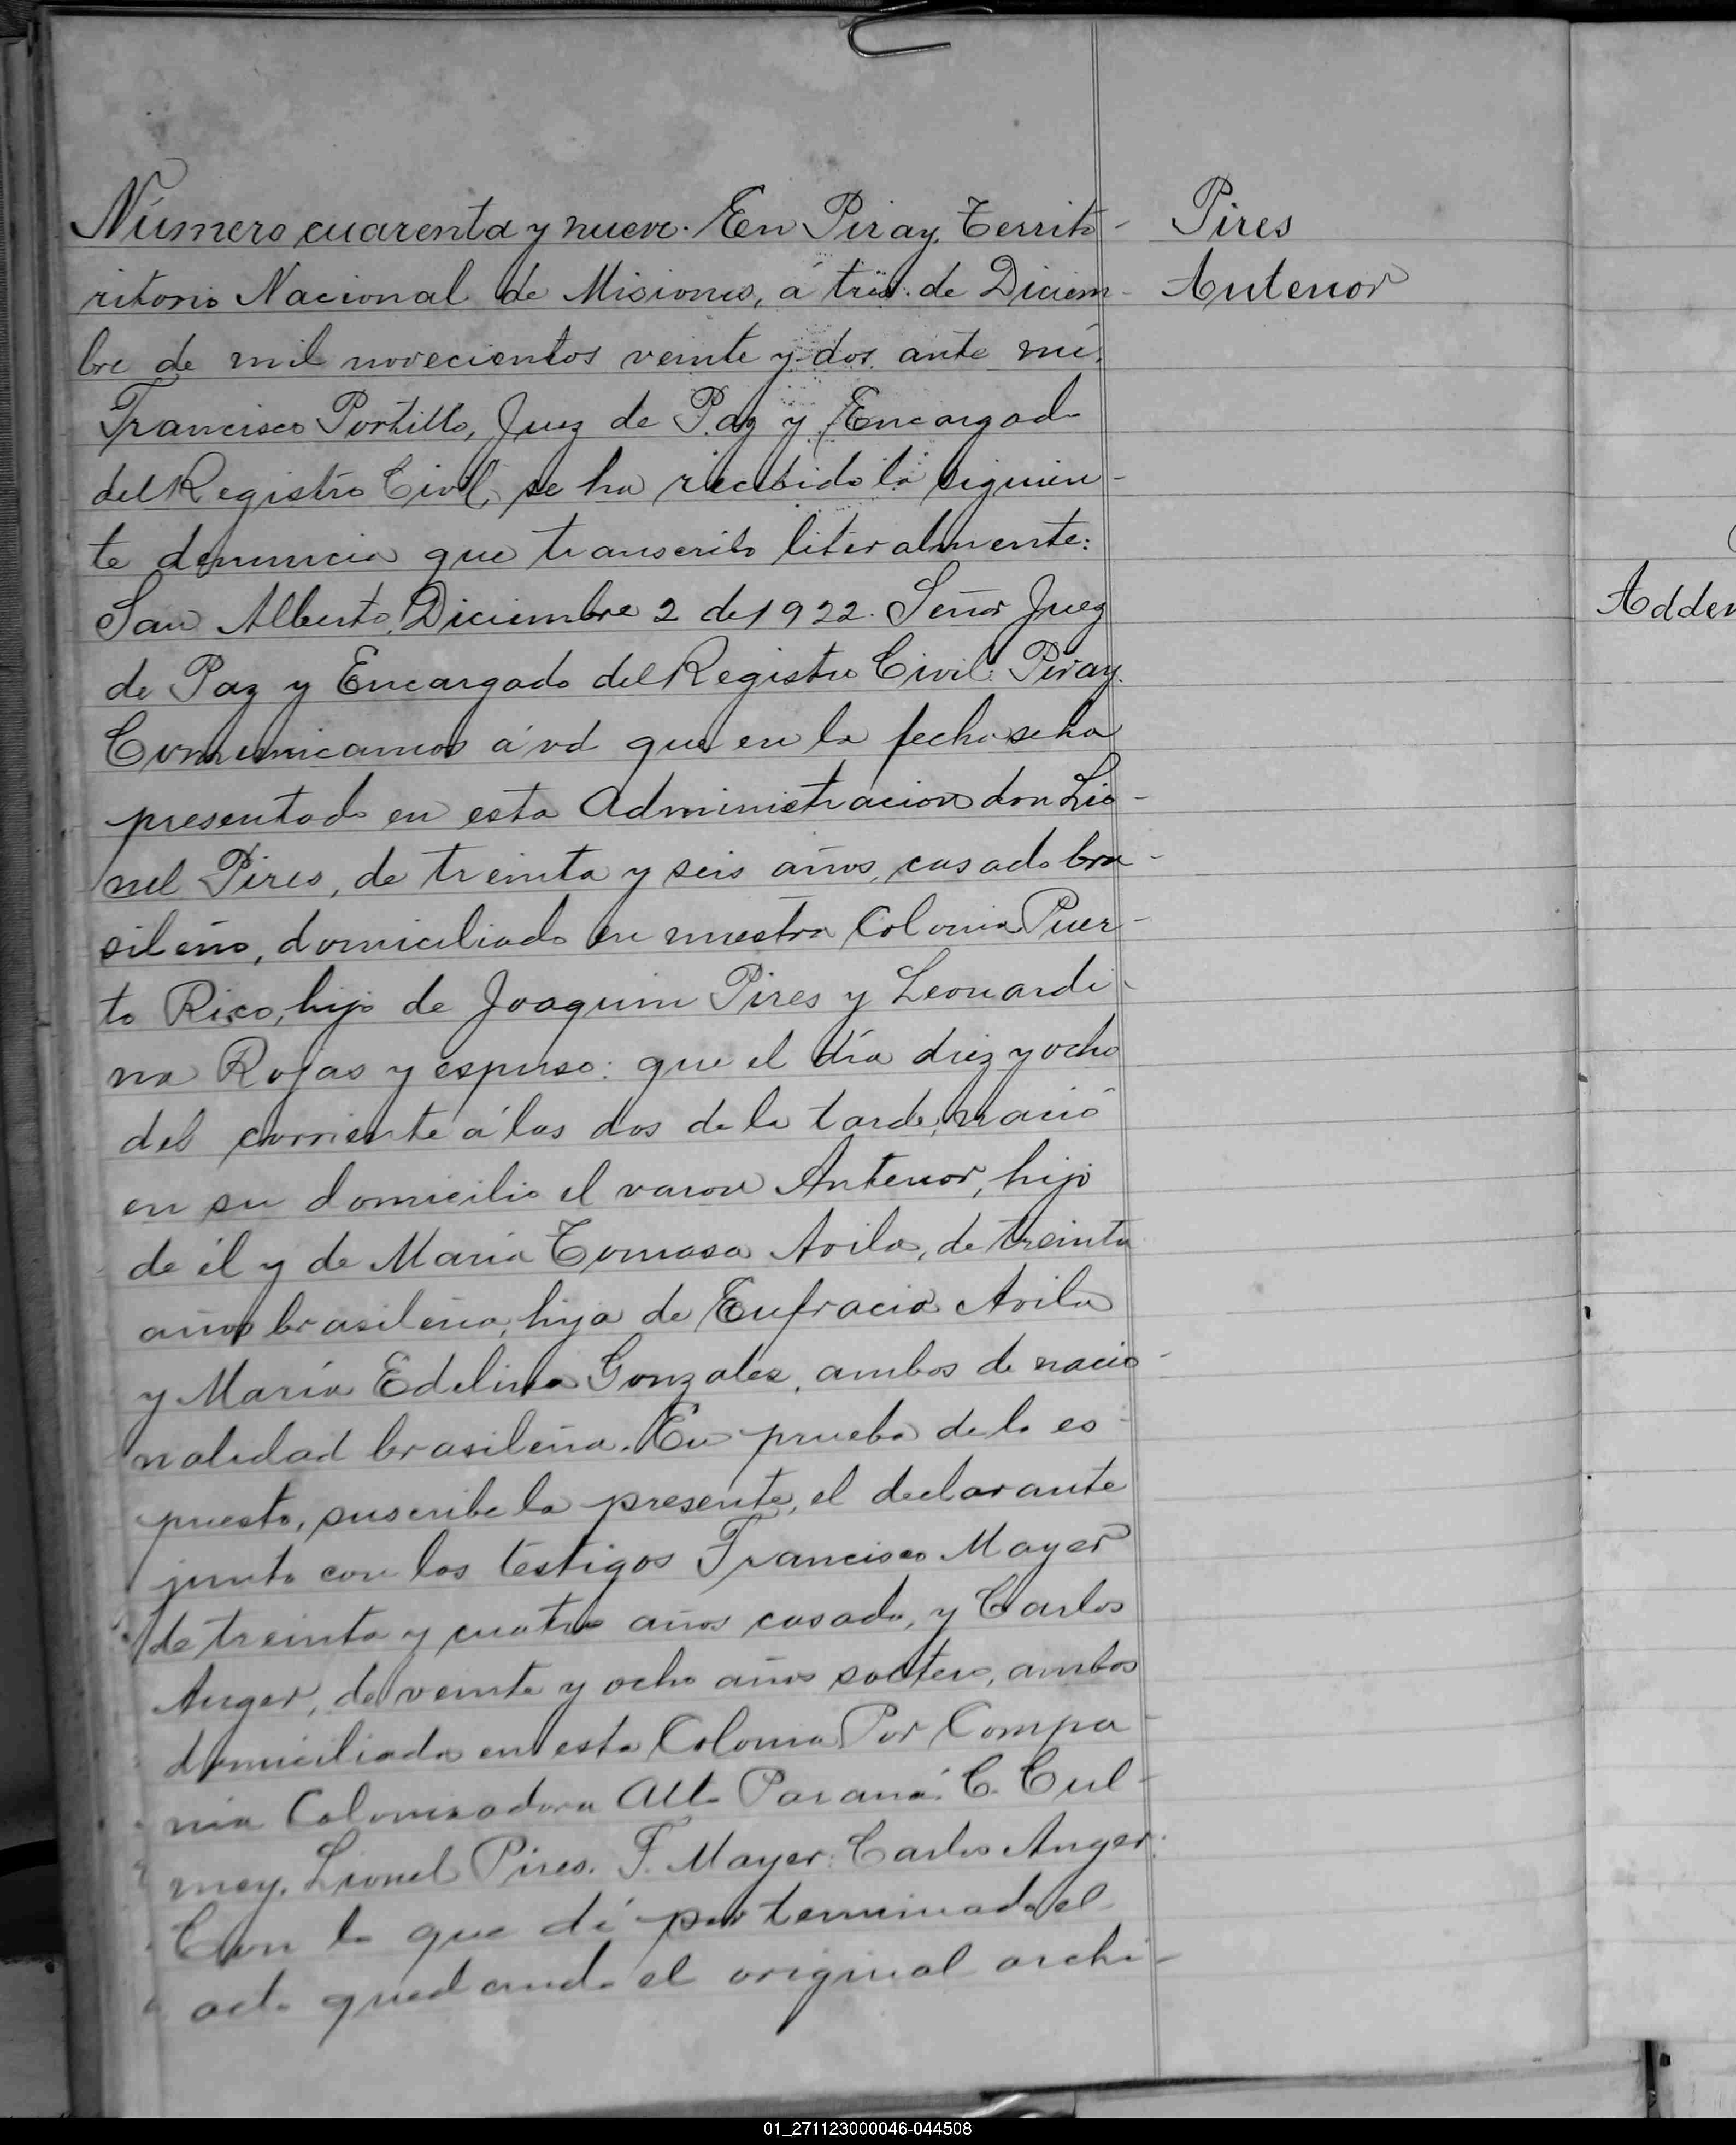 Número cuarenta y nueve. En Piray, Territo-
ritorio Nacional de Misiones, á tres de Diciem-
bre de mil novecientos veinte y dos, ante mí,
Francisco Portillo, Juez de Paz y Encargado
del Registro Civil, se ha recibido la siguien-
te denuncia que transcribo literalmente:
San Alberto, Diciembre 2 de 1922. Señor Juez
de Paz y Encargado del Registro Civil. Piray.
Comunicamos á vd que en la fecha se ha
presentado en esta Administracion don Lio-
nel Pires, de treinta y seis años, casado bra-
sileño, domiciliado en nuestra Colonia Puer-
to Rico, hijo de Joaquim Pires y Leonardi-
na Rojas y espuso: que el día diez y ocho
del corriente á las dos de la tarde, nació
en su domicilio el varon Antenor, hijo
de él y de María Tomasa Avila, de treinta
años brasileña, hija de Eufracio Avila
y María Edelina Gonzalez, ambos de nacio-
nalidad brasileña. En prueba de lo es-
puesto, suscribe la presente, el declarante
junto con los testigos Francisco Mayer
de treinta y cuatro años casado, y Carlos
Anger, de veinte y ocho años soltero, ambos
domiciliados en esta Colonia Por Compa-
nia Colonizadora Alto Paraná. C. Cul-
mey. Lionel Pires. F. Mayer. Carlos Anger.
Con lo que dí por terminado el
acto quedando el original archi-
Pires
Antenor
Adder
01_271123000046-044508